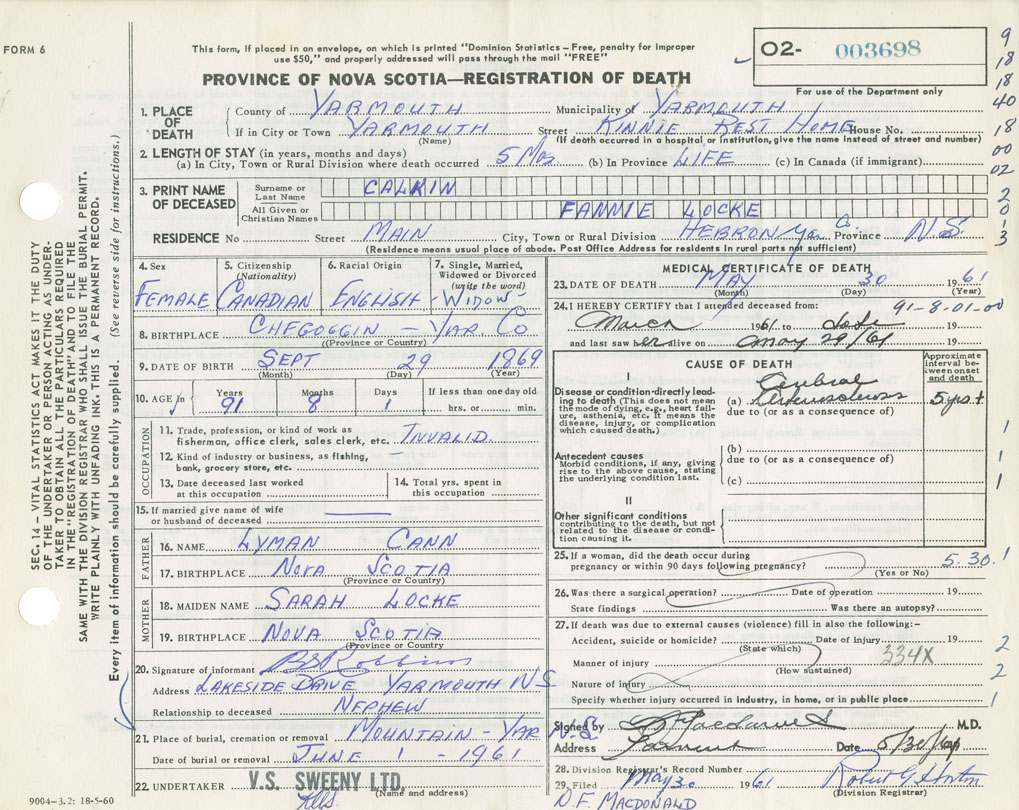 FORM 6
This form, if placed in an envelope, on which is printed "Dominion Statistics – Free, penalty for improper
use $50," and properly addressed will pass through the mail "FREE"
O2- 003698
For use of the Department only
PROVINCE OF NOVA SCOTIA—REGISTRATION OF DEATH
1. PLACE OF DEATH
County of YARMOUTH Municipality of YARMOUTH
If in City or Town YARMOUTH Street KINNIE REST HOME House No.
(Name) (If death occurred in a hospital or institution, give the name instead of street and number)
2. LENGTH OF STAY (in years, months and days)
(a) In City, Town or Rural Division where death occurred 5 Mos (b) In Province LIFE (c) In Canada (if immigrant)
3. PRINT NAME OF DECEASED
Surname or Last Name CALKIN
All Given or Christian Names FANNIE LOCKE
RESIDENCE No Street MAIN City, Town or Rural Division HEBRON Yar Co. Province N.S.
(Residence means usual place of abode. Post Office Address for residents in rural parts not sufficient)
4. Sex FEMALE
5. Citizenship (Nationality) CANADIAN
6. Racial Origin ENGLISH
7. Single, Married, Widowed or Divorced (write the word) -WIDOW-
8. BIRTHPLACE CHEGOGGIN – YAR. CO
(Province or Country)
9. DATE OF BIRTH SEPT 29 1869
(Month) (Day) (Year)
10. AGE in Years 91 Months 8 Days 1 If less than one day old hrs. or min.
OCCUPATION
11. Trade, profession, or kind of work as
fisherman, office clerk, sales clerk, etc. INVALID
12. Kind of industry or business, as fishing,
bank, grocery store, etc. –
13. Date deceased last worked
at this occupation
14. Total yrs. spent in
this occupation
15. If married give name of wife
or husband of deceased
FATHER
16. NAME LYMAN CANN
17. BIRTHPLACE NOVA SCOTIA
(Province or Country)
MOTHER
18. MAIDEN NAME SARAH LOCKE
19. BIRTHPLACE NOVA SCOTIA
(Province or Country)
20. Signature of informant Robbins
Address LAKESIDE DRIVE YARMOUTH N S
Relationship to deceased NEPHEW
21. Place of burial, cremation or removal MOUNTAIN – YAR N.S
Date of burial or removal JUNE 1 - 1961
22. UNDERTAKER V.S. SWEENY LTD.
(Name and address)
9004-3.2: 18-5-60
MEDICAL CERTIFICATE OF DEATH
23. DATE OF DEATH MAY 30 1961
(Month) (Day) (Year)
24. I HEREBY CERTIFY that I attended deceased from: 91-8-01-00
March 1961 to date 19
and last saw her alive on May 29/61 19
CAUSE OF DEATH
Approximate interval between onset and death
I
Disease or condition directly leading to death (This does not mean the mode of dying, e.g., heart failure, asthenia, etc. It means the disease, injury, or complication which caused death.)
(a) Cerebral Arteriosclerosis 5 yrs +
due to (or as a consequence of)
Antecedent causes
Morbid conditions, if any, giving rise to the above cause, stating the underlying condition last.
(b)
due to (or as a consequence of)
(c)
II
Other significant conditions
contributing to the death, but not related to the disease or condition causing it.
25. If a woman, did the death occur during
pregnancy or within 90 days following pregnancy? 5.30
(Yes or No)
26. Was there a surgical operation? Date of operation 19
State findings Was there an autopsy?
27. If death was due to external causes (violence) fill in also the following:-
Accident, suicide or homicide? Date of injury 19
(State which)
334X
Manner of injury
(How sustained)
Nature of injury
Specify whether injury occurred in industry, in home, or in public place
Signed by Macdonald M.D.
Address Yarmouth Date 5/30/61
28. Division Registrar's Record Number
29. Filed May 30 1961 Robert G Horton
(Division Registrar)
D.F. MACDONALD
9
18
18
40
18
00
02
2
0
1
3
1
1
1
1
2
2
1
SEC. 14 – VITAL STATISTICS ACT MAKES IT THE DUTY
OF THE UNDERTAKER OR PERSON ACTING AS UNDER-
TAKER TO OBTAIN ALL THE PARTICULARS REQUIRED
IN THE "REGISTRATION OF DEATH" AND TO FILE THE
SAME WITH THE DIVISION REGISTRAR WHO SHALL ISSUE THE BURIAL PERMIT.
WRITE PLAINLY WITH UNFADING INK. THIS IS A PERMANENT RECORD.
Every item of information should be carefully supplied. (See reverse side for instructions.)